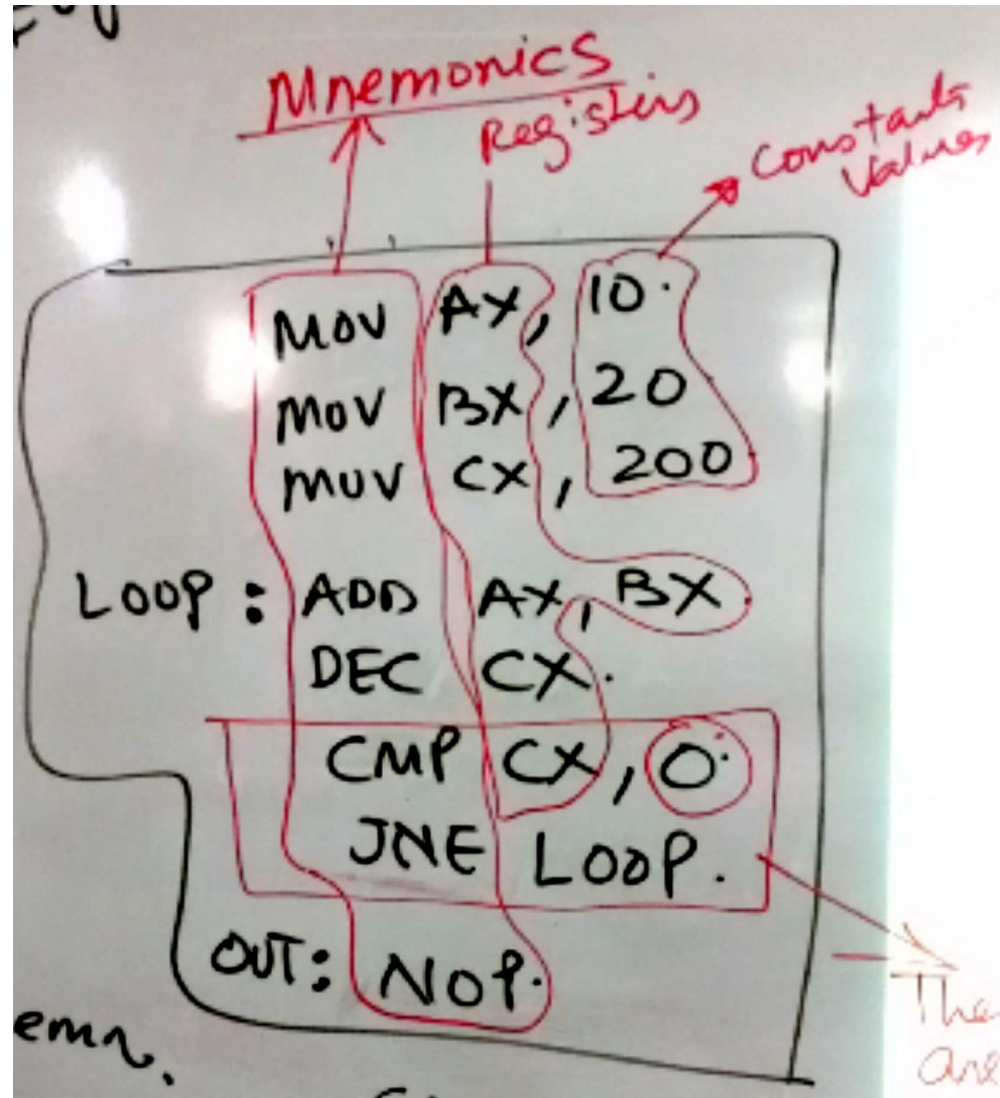 Mnemonics
Registers
Constants
Values
MOV AX, 10.
MOV BX, 20
MOV CX, 200
LOOP: ADD AX, BX
DEC CX.
CMP CX, 0.
JNE LOOP.
OUT: NOP.
The
are